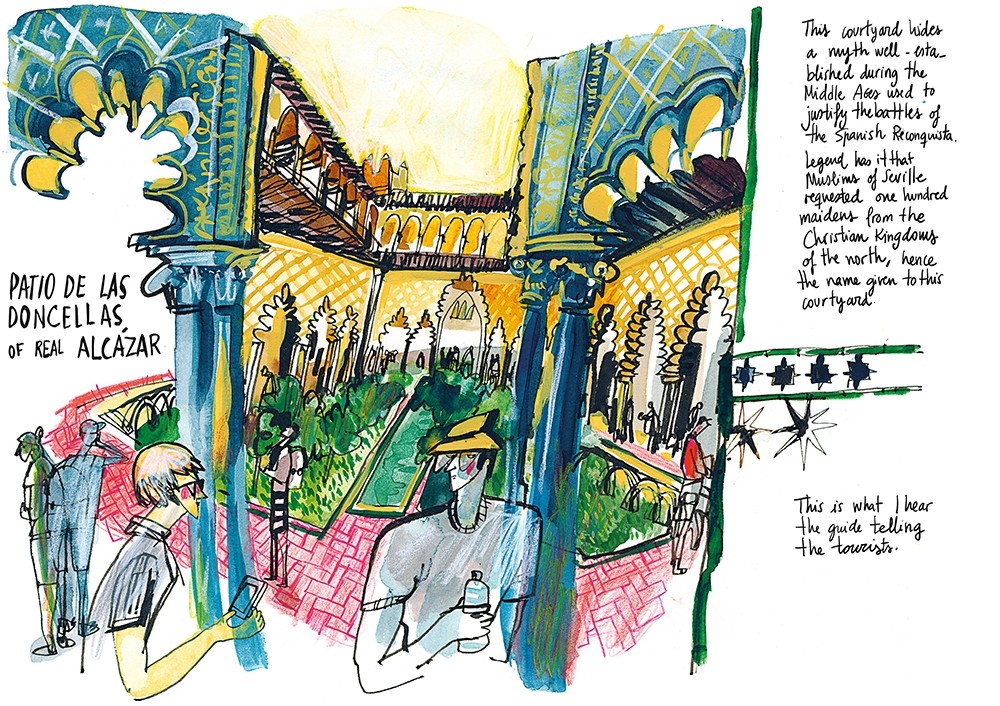 PATIO DE LAS
DONCELLAS,
OF REAL ALCÁZAR
This courtyard hides
a myth well-esta-
blished during the
Middle Ages used to
justify the battles of
the Spanish Reconquista.
Legend has it that
Muslims of Seville
requested one hundred
maidens from the
Christian Kingdoms
of the north, hence
the name given to this
courtyard.
This is what I hear
the guide telling
the tourists.